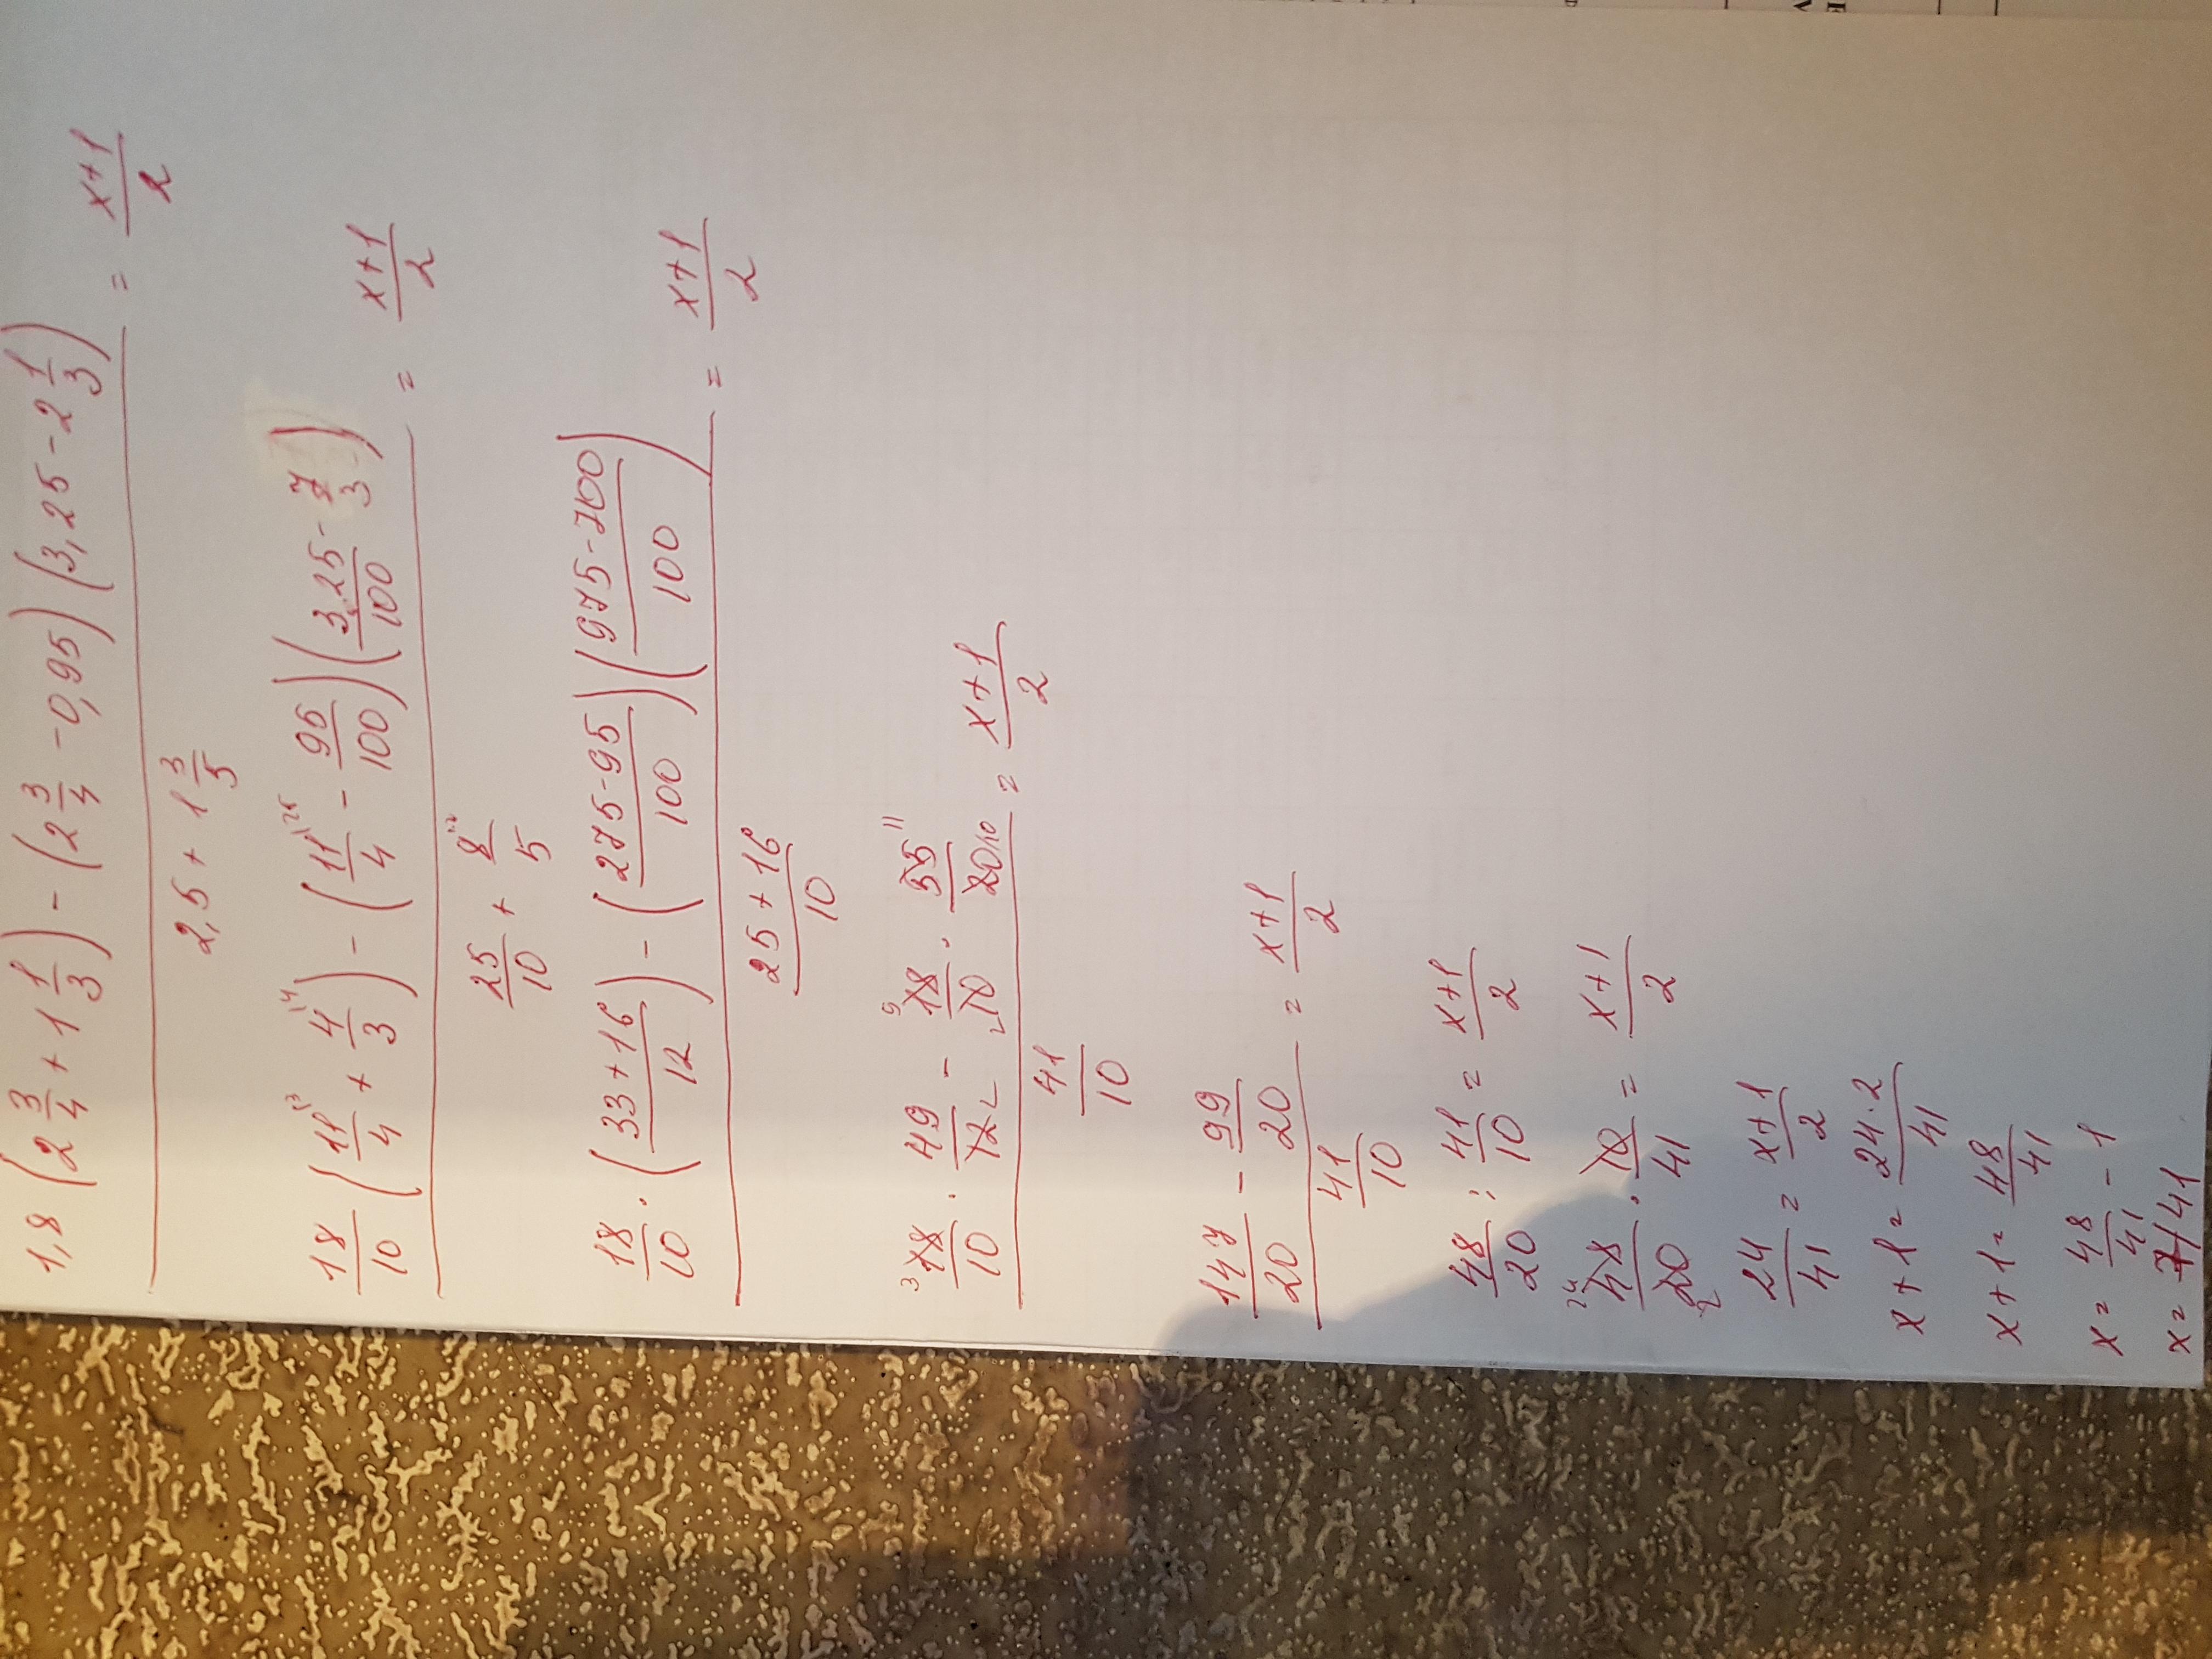 1,8 (2 3/4 + 1 1/3) - (2 3/4 - 0,95) (3,25 - 2 1/3) = x+1
2,5 + 1 3/5 2
18/10 (11/4 + 4/3) - (11/4 - 95/100) (3.25/100 - 7/3) = x+1
25/10 + 8/5 2
18/10 · (33+16/12) - (275-95/100) (975-700/100) = x+1
25+16/10 2
18/10 · 49/12 - 18/10 · 55/20 = x+1
41/10 2
147/20 - 99/20 = x+1
41/10 2
48/20 : 41/10 = x+1/2
48/20 · 10/41 = x+1/2
24/41 = x+1/2
x+1 = 24·2/41
x+1 = 48/41
x = 48/41 - 1
x = 7/41